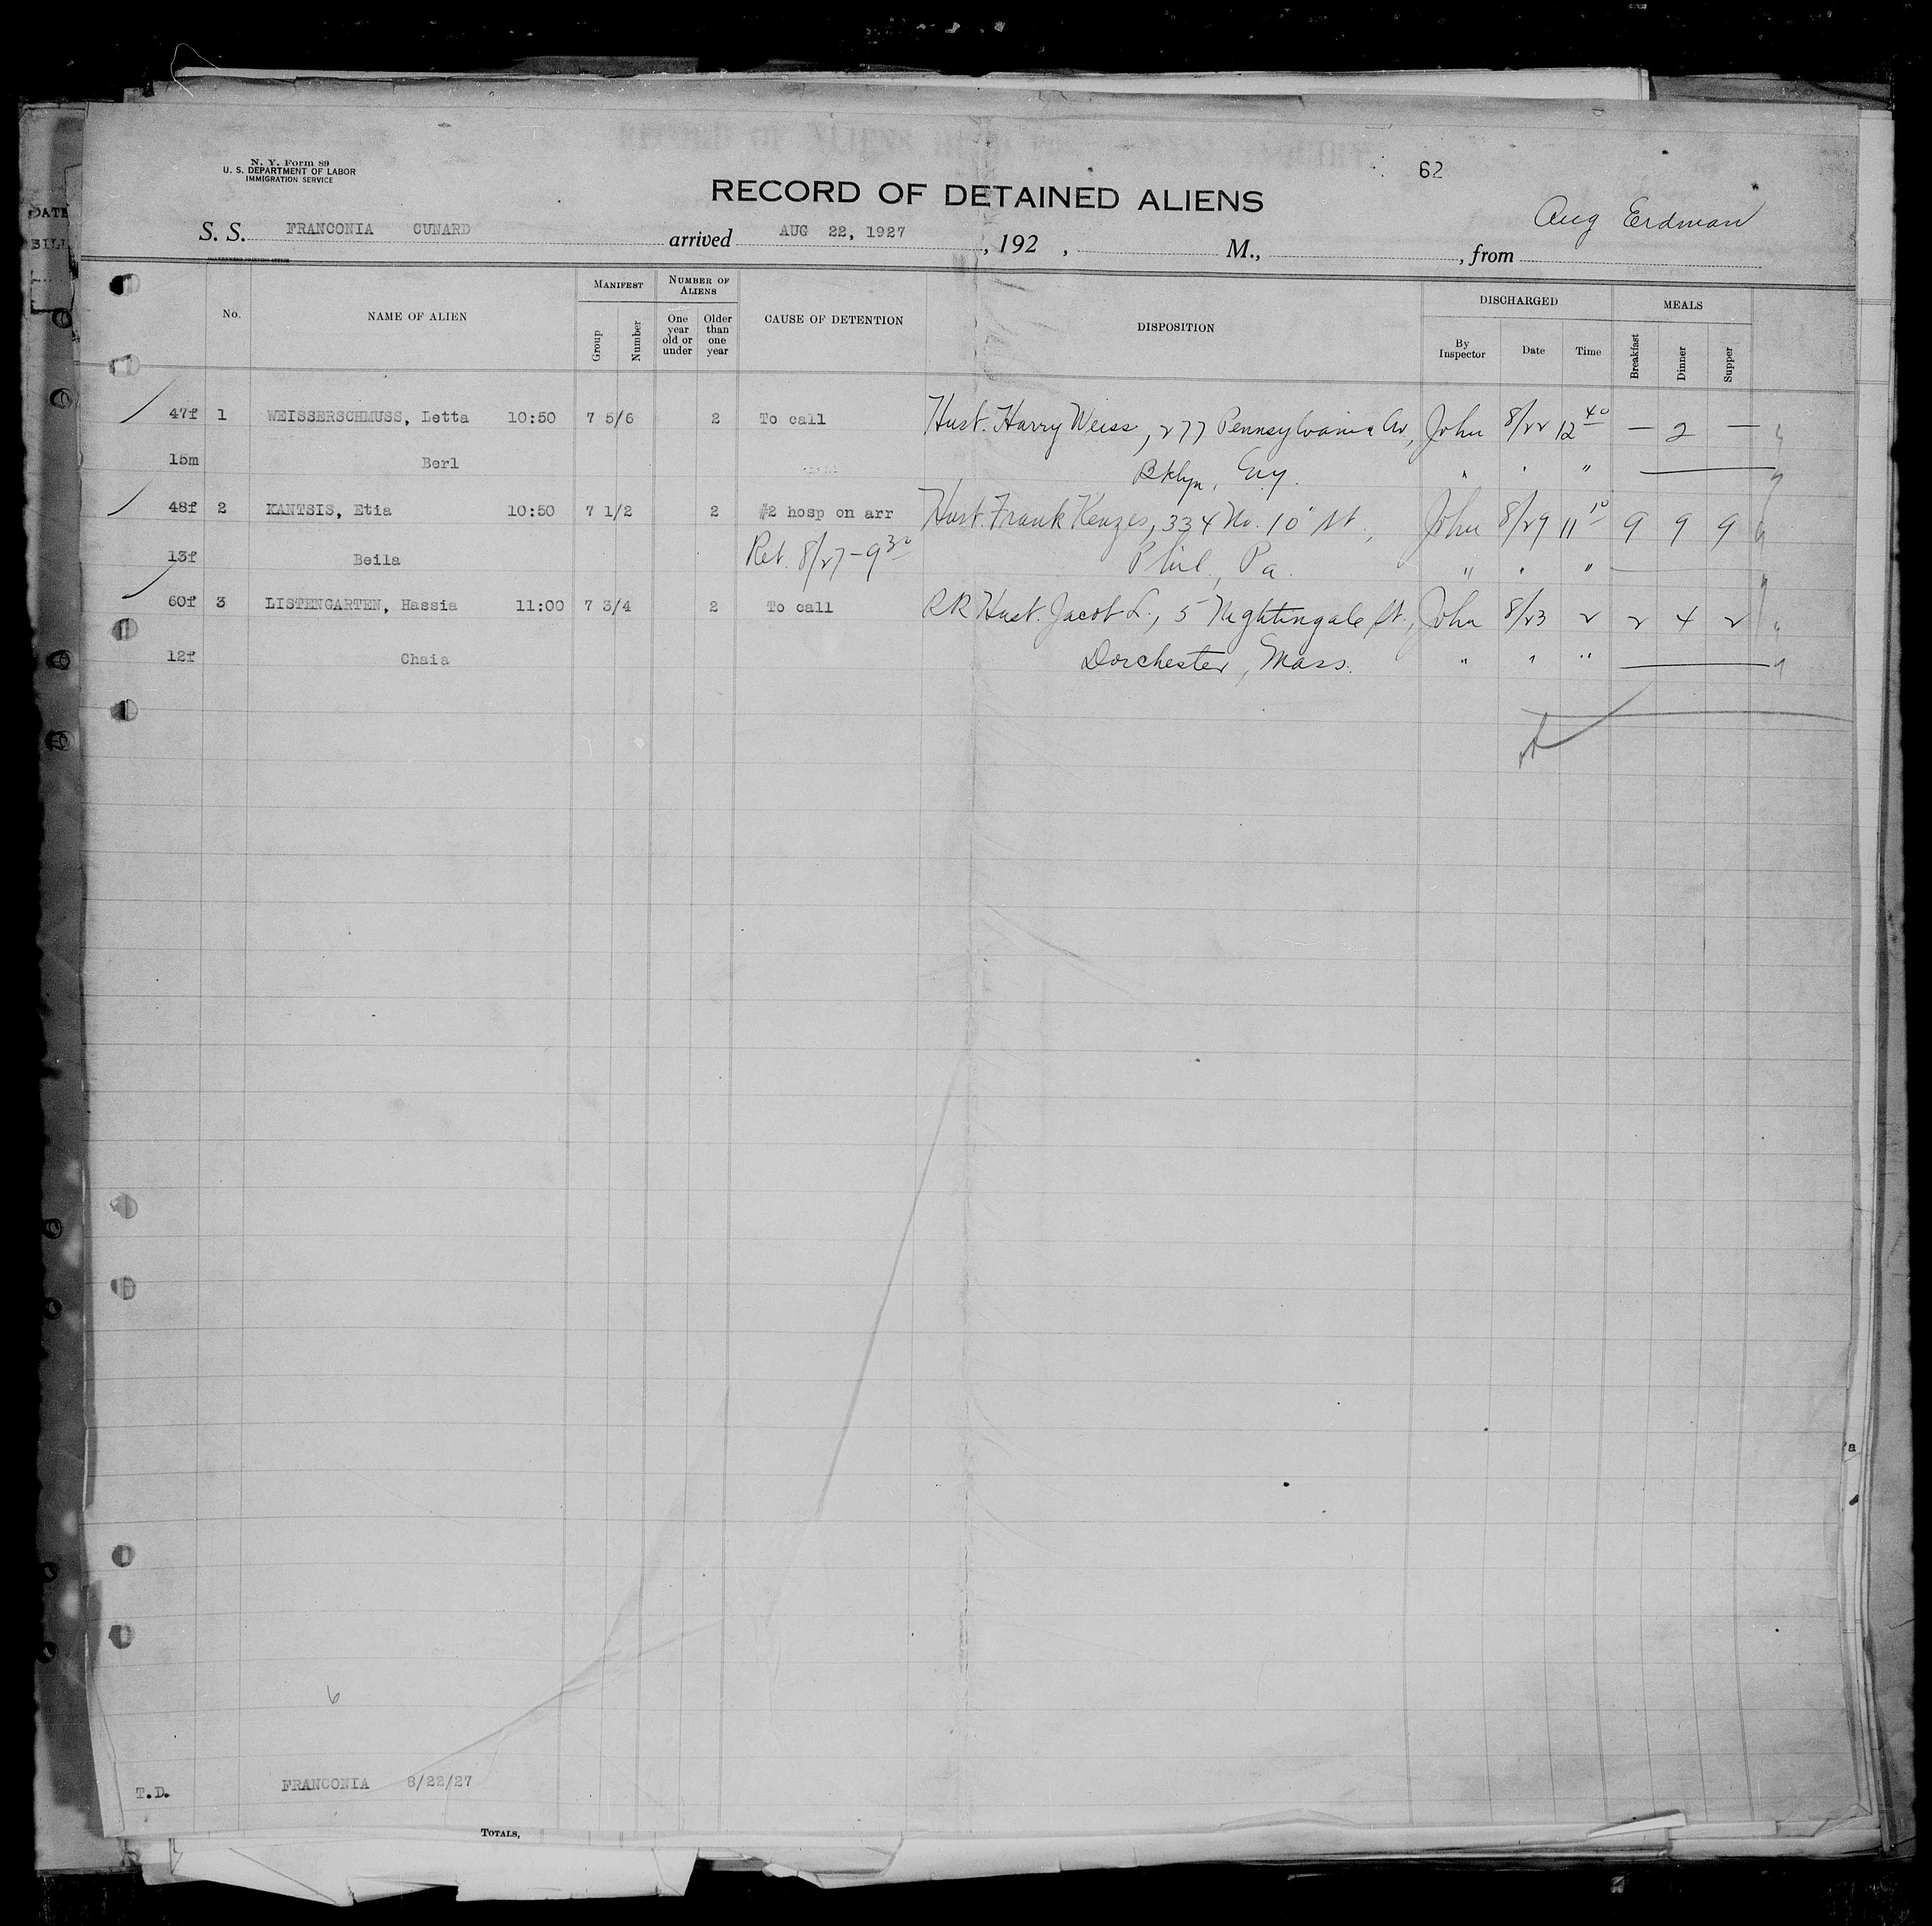 N. Y. Form 89
U. S. DEPARTMENT OF LABOR
IMMIGRATION SERVICE
62
RECORD OF DETAINED ALIENS
Aug Erdman
S. S. FRANCONIA CUNARD arrived AUG 22, 1927, 192 , M., , from
DATE
BILL
No. NAME OF ALIEN MANIFEST Group Number NUMBER OF ALIENS One year old or under Older than one year CAUSE OF DETENTION DISPOSITION DISCHARGED By Inspector Date Time MEALS Breakfast Dinner Supper
47f 1 WEISSERSCHMUSS, Letta 10:50 7 5/6 2 To call Hust. Harry Weiss, 277 Pennsylvania Av, John 8/22 12 40 — 2 —
15m Berl Bklyn, " " "
48f 2 KANTSIS, Etia 10:50 7 1/2 2 #2 hosp on arr Hust. Frank Kenzes, 334 No. 10" St, John 8/29 11 10 9 9 9
13f Beila Ret. 8/27-9 30 Phil, Pa. " " "
60f 3 LISTENGARTEN, Hassia 11:00 7 3/4 2 To call RR Hust. Jacob L., 5 Nightingale St., John 8/23 2 2 4 2
12f Chaia Dorchester, Mass. " " "
6
T.D. FRANCONIA 8/22/27
TOTALS,